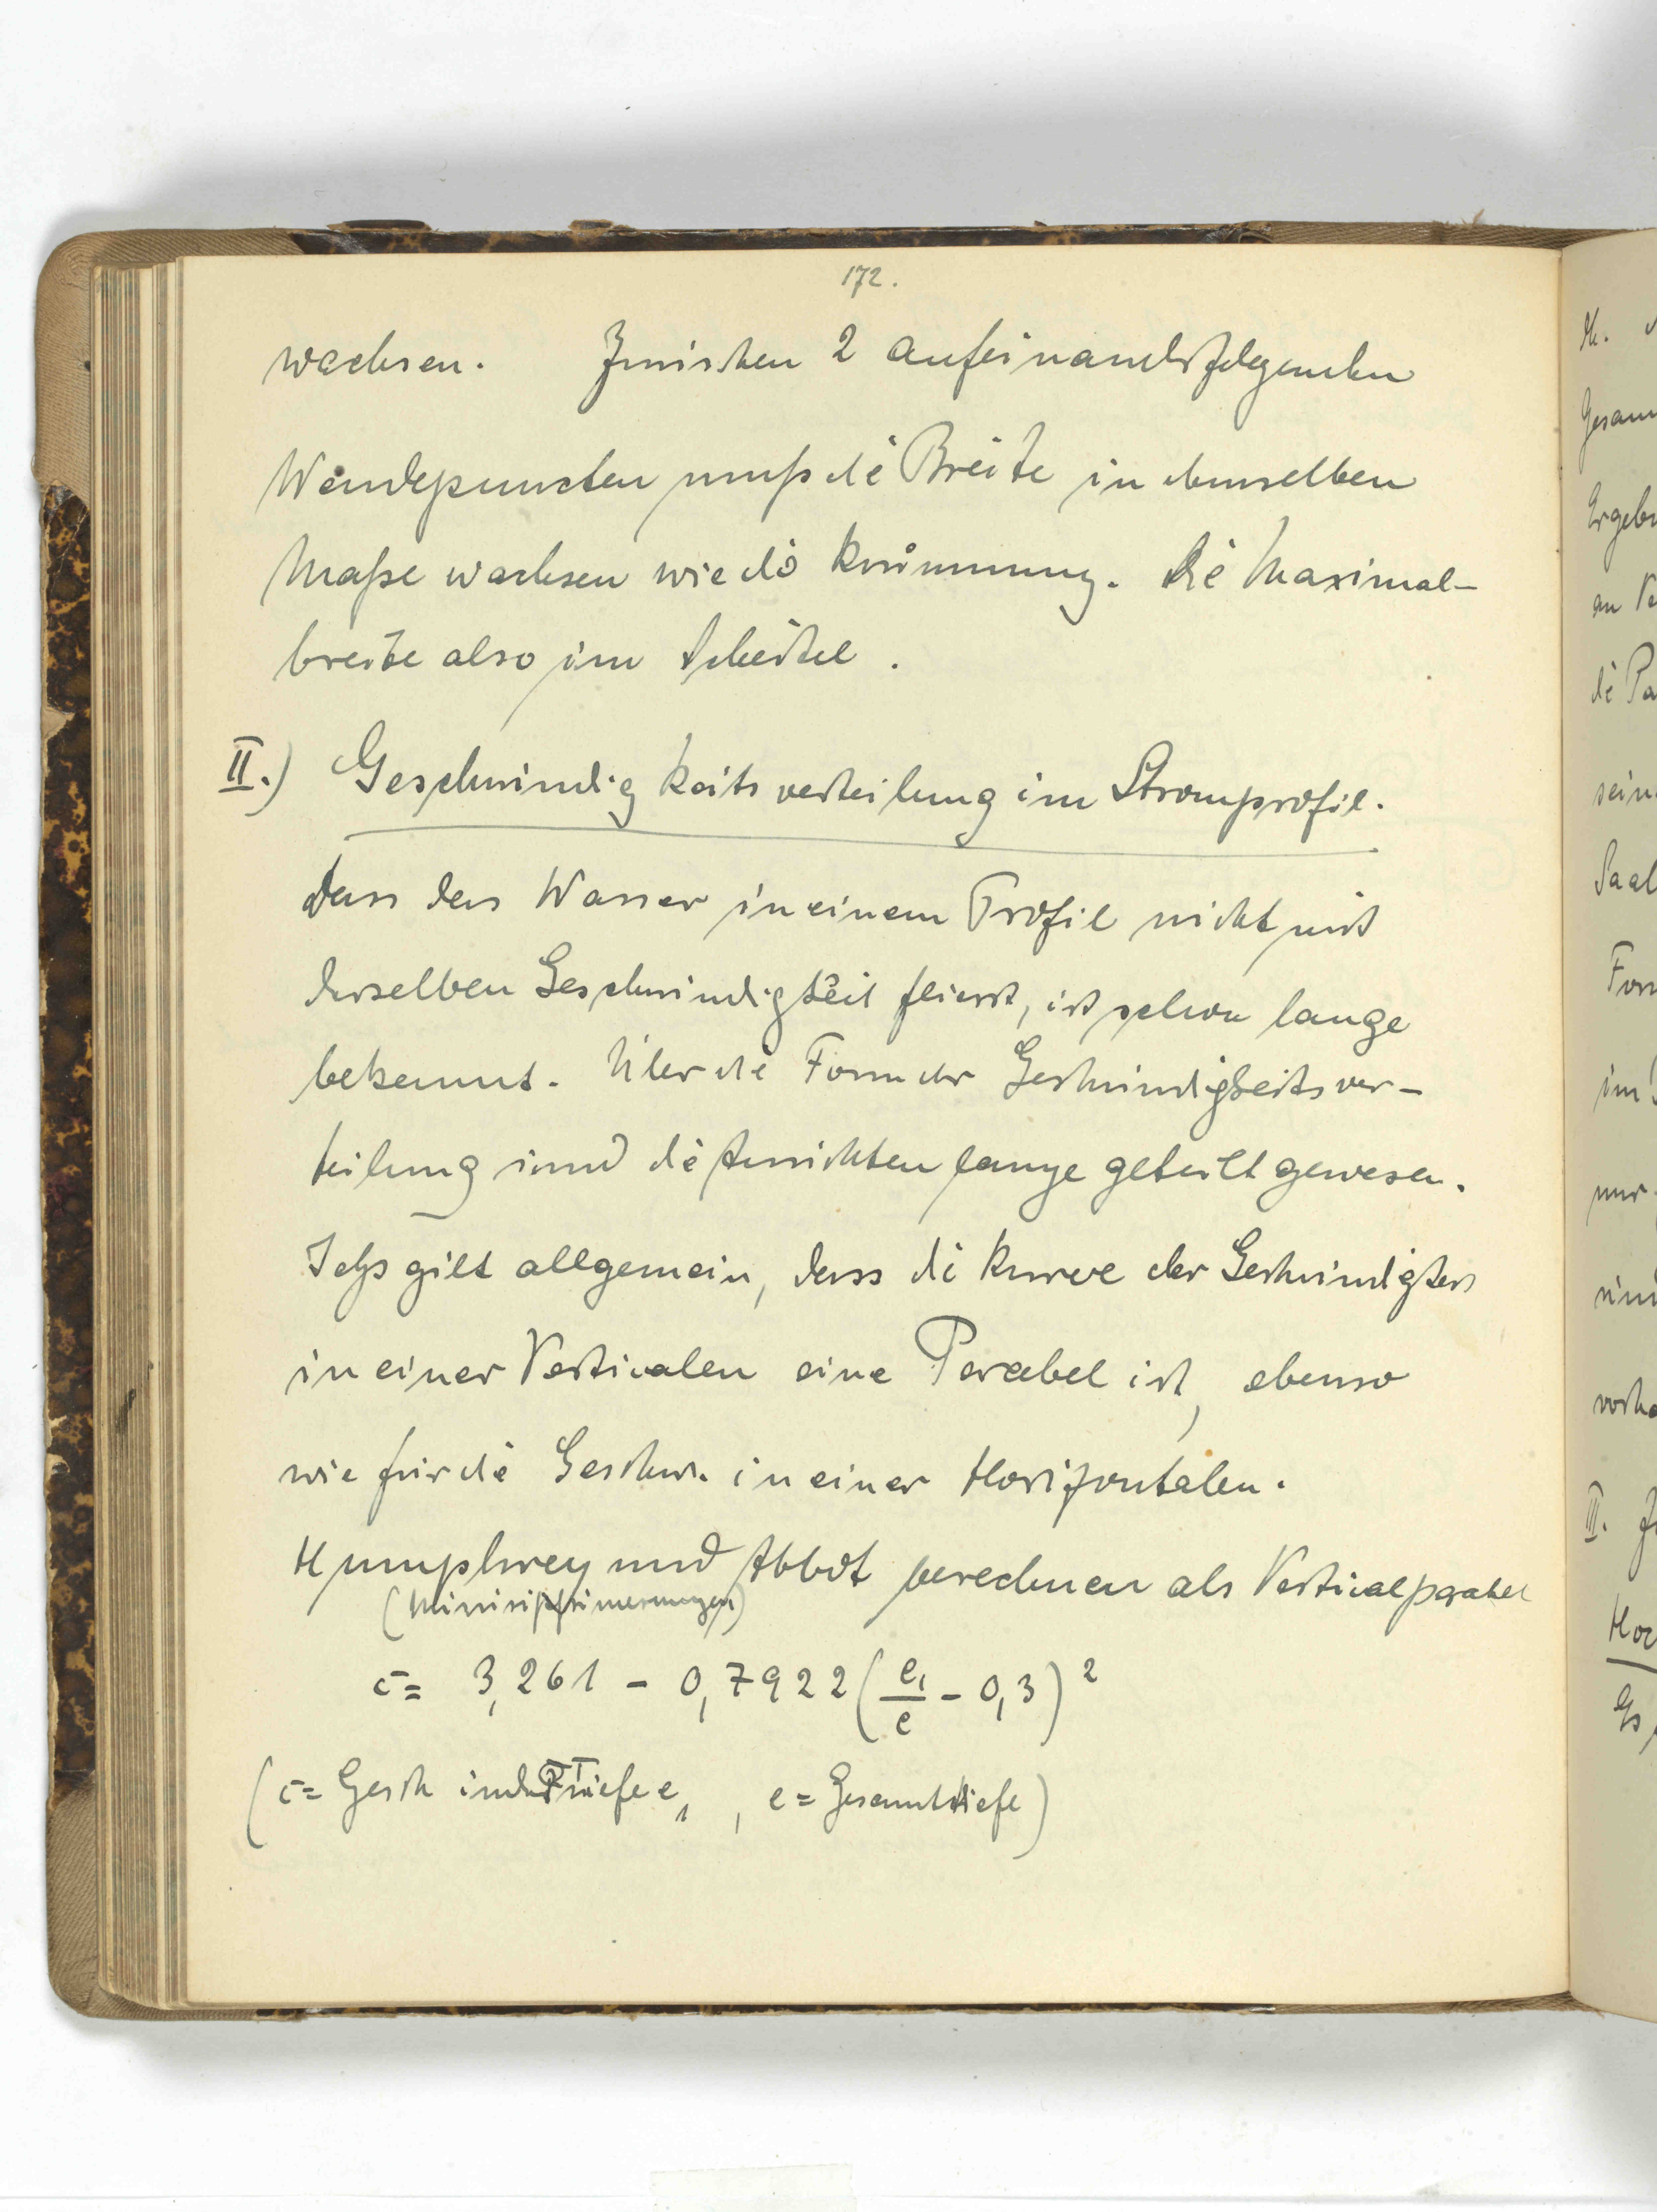 172.
wachsen. Zwischen 2 aufeinanderfolgenden
Wendepuncten muß die Breite in demselben
Maße wachsen wie die Krümmung. Die Maximal-
breite also im Scheitel.
II.) Geschwindigkeitsverteilung im Stromprofil.
Dass das Wasser in einem Profil nicht mit
derselben Geschwindigkeit fliesst, ist schon lange
bekannt. Über die Form der Geschwindigkeitsver-
teilung sind die Ansichten lange geteilt gewesen.
Jetzt gilt allgemein, dass die Kurve der Geschwindigkeit
in einer Verticalen eine Parabel ist, ebenso
wie für die Geschw. in einer Horizontalen.
Humphrey und Abbot berechnen als Verticalparabel
(Missisippimessungen)
c = 3,261 - 0,7922 (e₁/e - 0,3)²
(c = Gesch in der Tiefe e₁, e = Gesamttiefe)
II.
Gesam
Ergebn
an Ve
die Pa
sein
Saal
Form
im
nur
sind
vorha
III.
Hoc
Es